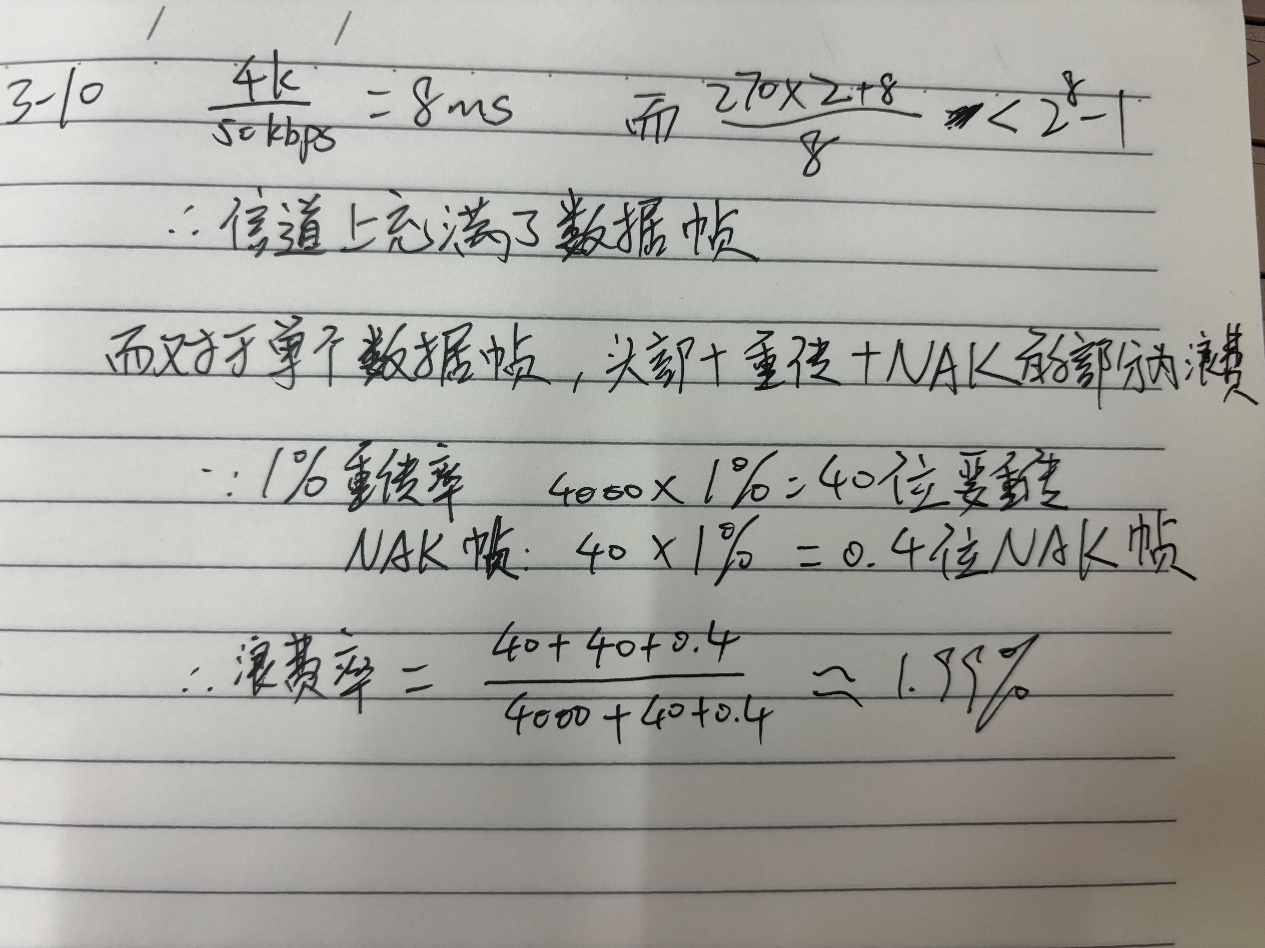 3-10 4k/50kbps = 8ms 而 (270×2+8)/8 < 2^8-1
∴信道上充满了数据帧
而对于单个数据帧,头部+重传+NAK的部分为浪费
∵1%重传率 4000×1%=40位要重传
NAK帧: 40×1% = 0.4位NAK帧
∴浪费率 = (40+40+0.4)/(4000+40+0.4) ≈ 1.99%